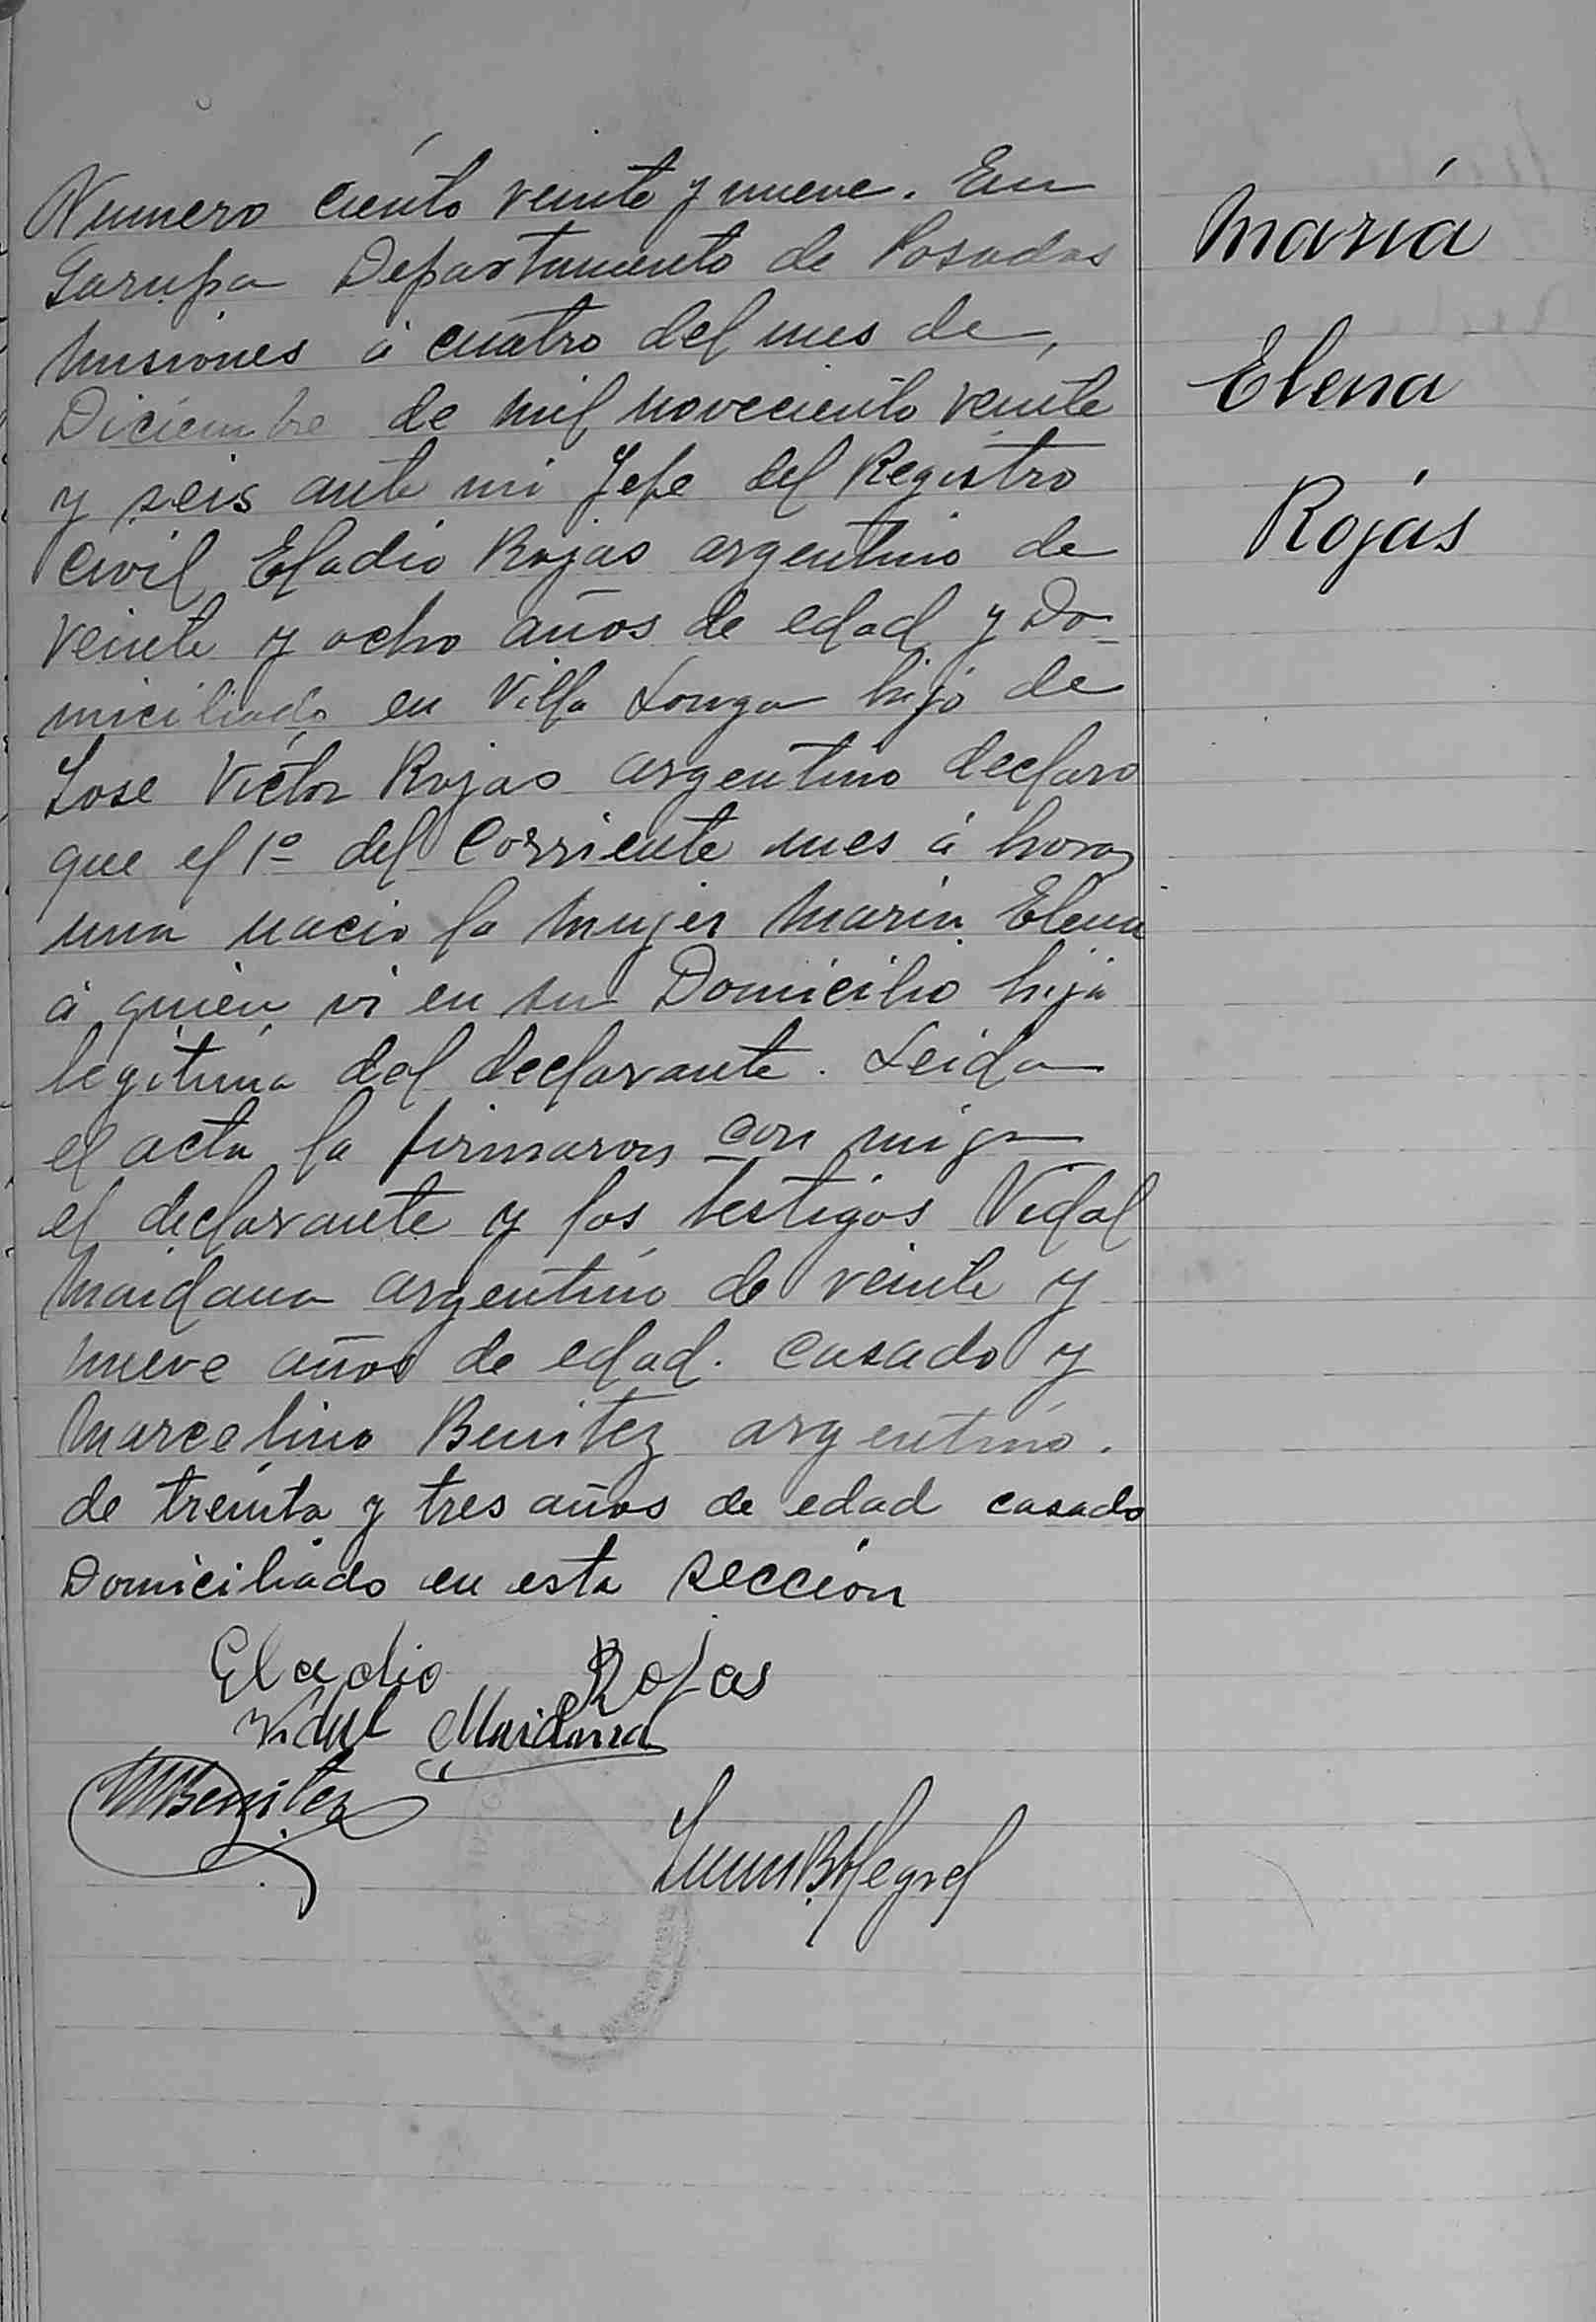 Numero ciento veinte y nueve. En
Garupa Departamento de Posadas
Misiones á cuatro del mes de,
Diciembre de mil noveciento veinte
y seis ante mi Jefe del Registro
Civil Eladio Rojas argentino de
veinte y ocho años de edad y Do-
miciliado en Villa Longa hijo de
Jose Victor Rojas argentino declaro
que el 1º del Corriente mes á horas
una nacio la mujer Maria Elena
á quien vi en su Domicilio hija
legitima del declarante. Leida
el acta la firmaron con migo
el declarante y los testigos Vidal
Maidana argentino de veinte y
nueve años de edad. Casado y
Marcelino Benitez argentino.
de treinta y tres años de edad casado
Domiciliado en esta seccion
Eladio Rojas
Vidal Maidana
MBenitez
María
Elena
Rojas